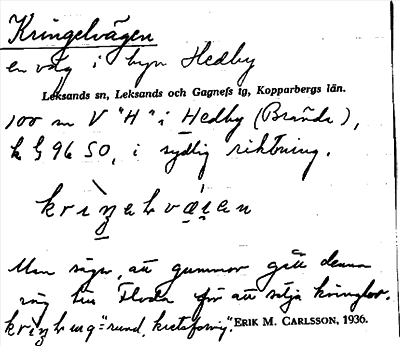 Kringelvägen
en väg i byn Hedby
Leksands sn, Leksands och Gagnefs tg, Kopparbergs län.
100 m V "H" i Hedby (Brända),
k § 96 SO, i sydlig riktning.
Man säger, att gummor gått denna
väg till Floda för att sälja kringlor.
"rund, kretsformig". ERIK M. CARLSSON, 1936.